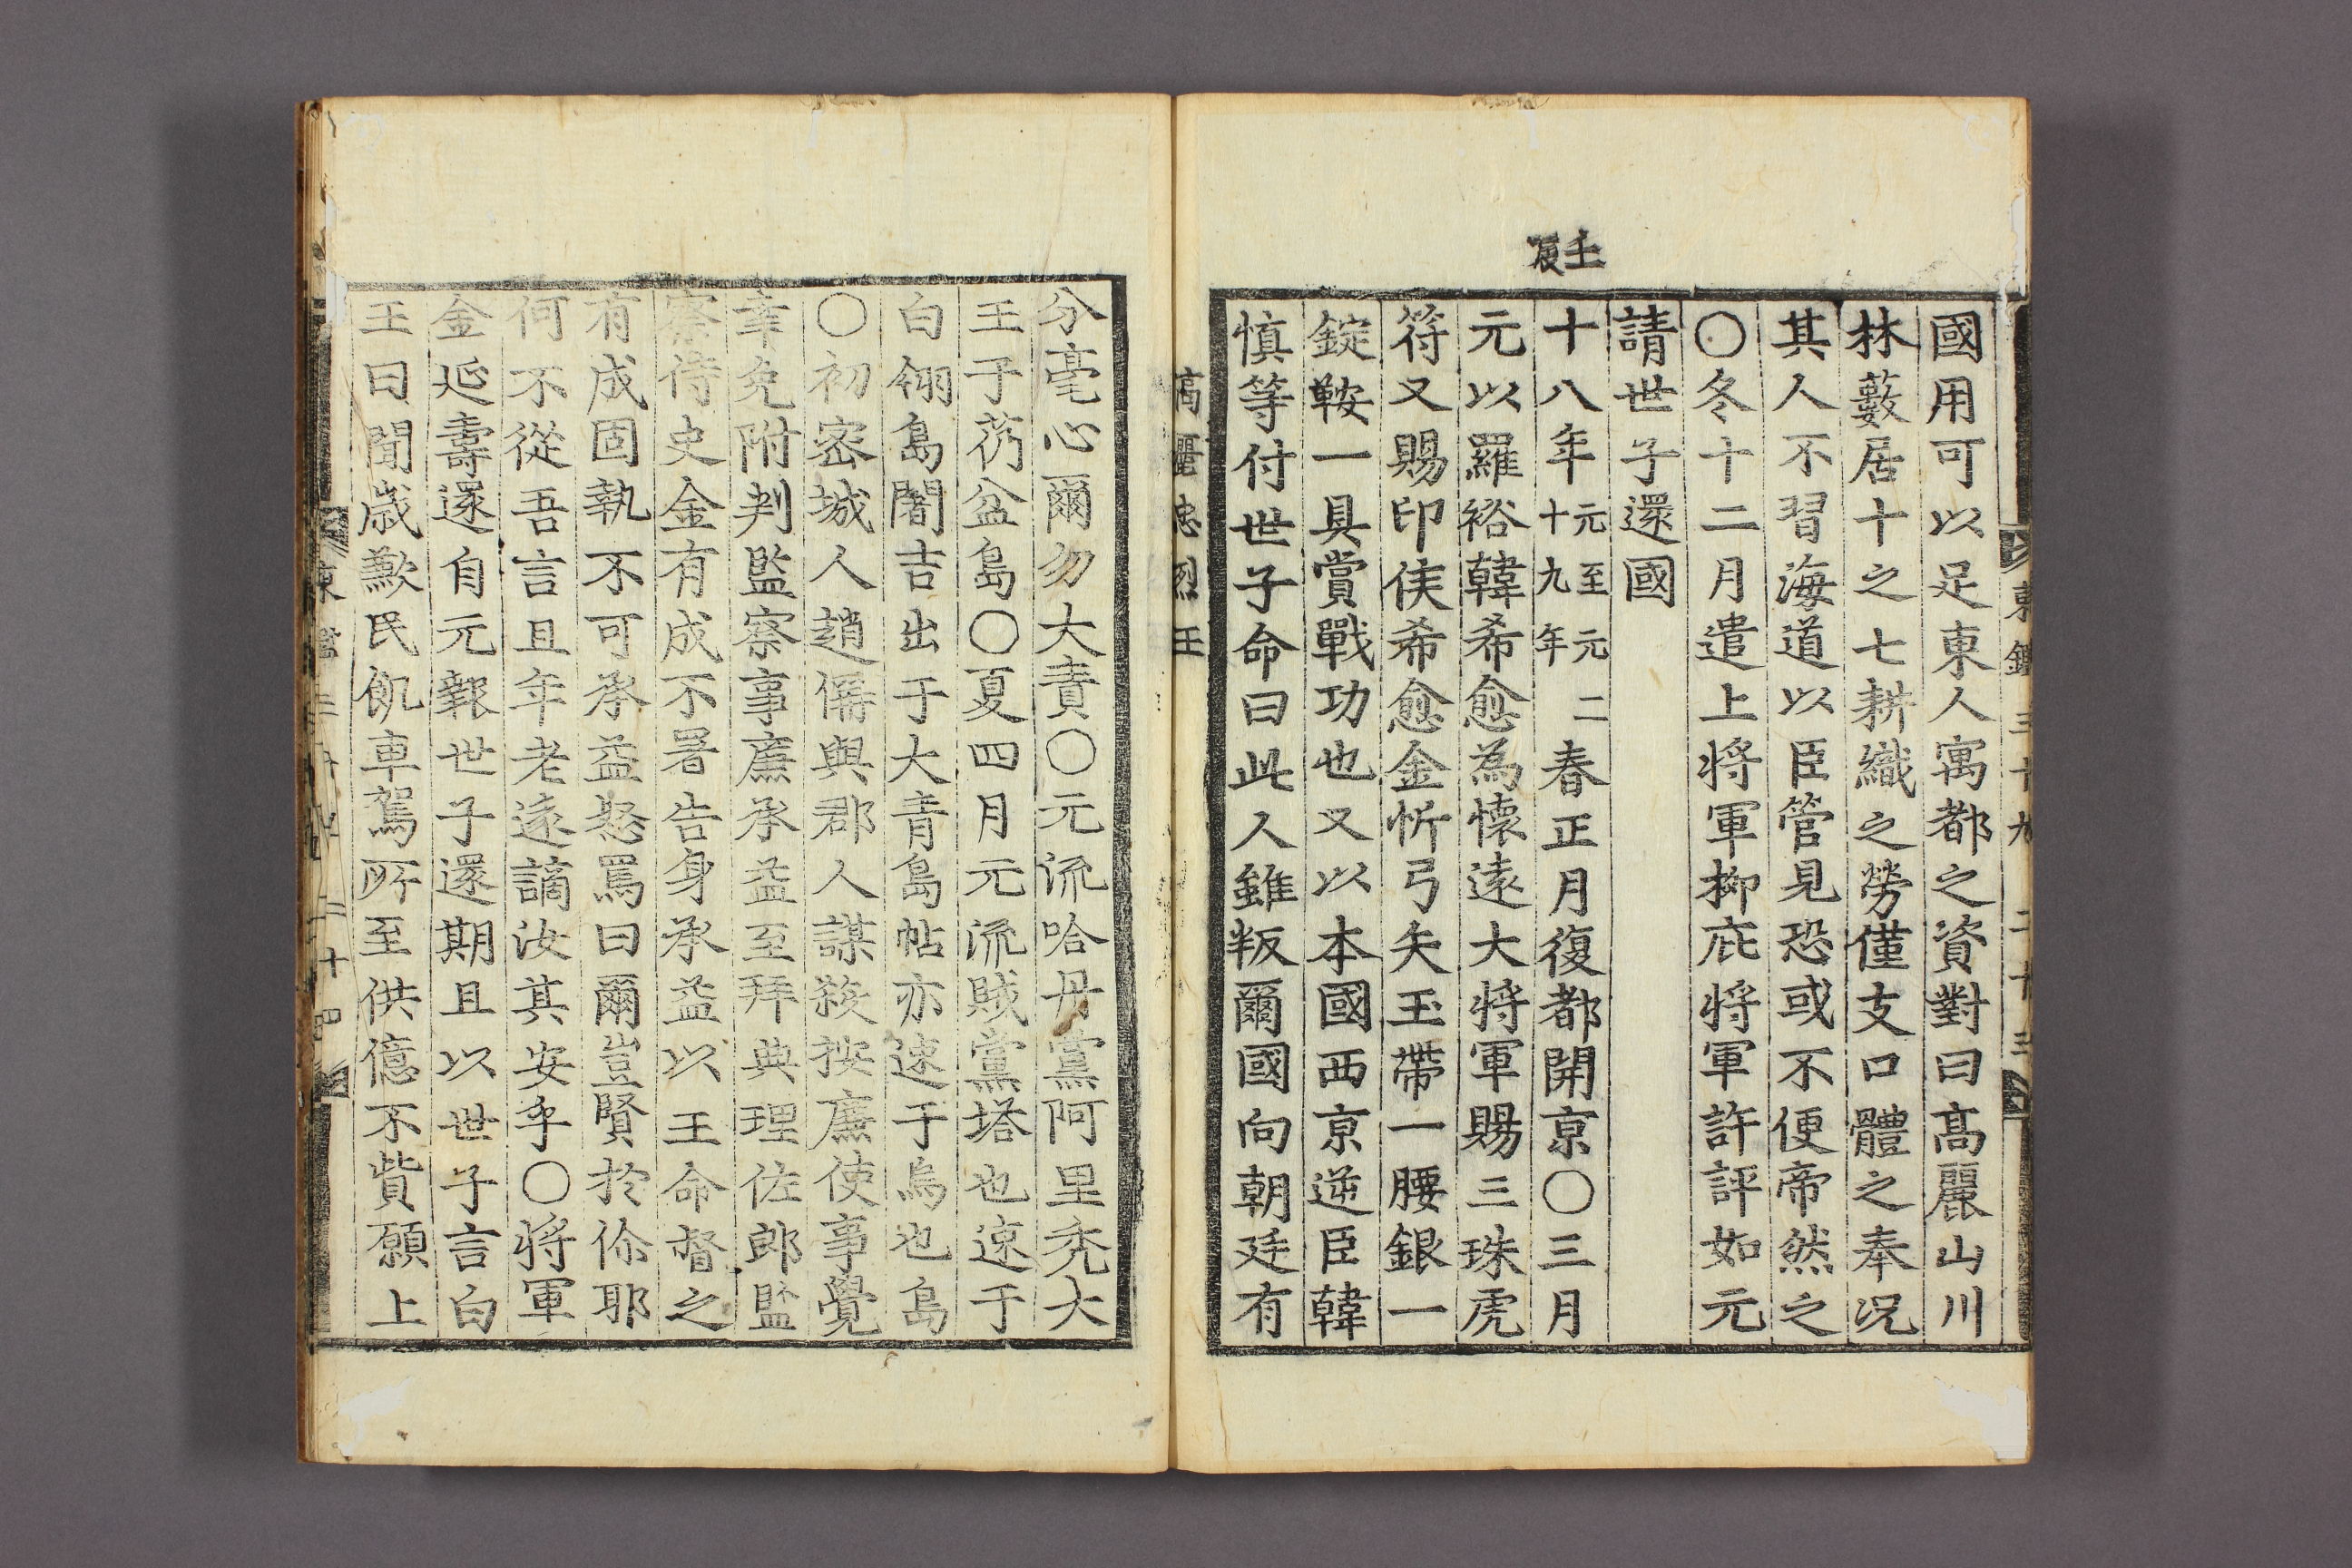 東鑑 三十九 二十三
國用可以足東人寓都之資對曰高麗山川
林藪居十之七耕織之勞僅支口體之奉况
其人不習海道以臣管見恐或不便帝然之
〇冬十二月遣上將軍柳庇將軍許評如元
請世子還國
壬辰
十八年元至元二十九年春正月復都開京〇三月
元以羅裕韓希愈為懷遠大將軍賜三珠虎
符又賜印侯希愈金忻弓矢玉帶一腰銀一
錠鞍一具賞戰功也又以本國西京逆臣韓
慎等付世子命曰此人雖叛爾國向朝廷有
高麗忠烈王
分毫心爾勿大責〇元流哈丹黨阿里禿大
王于芿盆島〇夏四月元流賊黨塔也速于
白翎島闍吉出于大青島帖亦速于烏也島
〇初密城人趙僐與郡人謀殺按廉使事覺
幸免附判監察事廉承益至拜典理佐郎監
察侍史金有成不署告身承益以王命督之
有成固執不可承益怒罵曰爾豈賢於伱耶
何不從吾言且年老遠謫汝其安乎〇將軍
金延壽還自元報世子還期且以世子言白
王曰聞歲歉民飢車駕所至供億不貲願上
東鑑 三十九 二十四